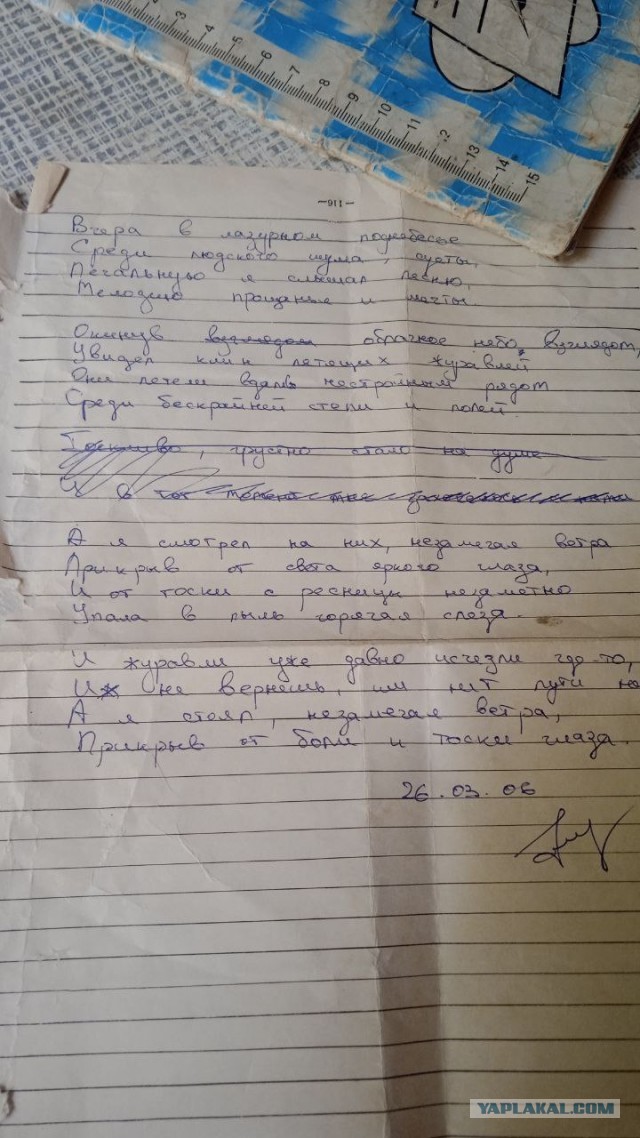 5 6 7 8 9 10 11 12 13 14 15
-911-
Вчера в лазурном поднебесье
Среди людского шума, суеты,
Печальную я слышал песню,
Мелодию прощанья и мечты.
Окинув взглядом обрачное небо взглядом,
Увидел клин летящих журавлей
Они летели вдаль нестройным рядом
Среди бескрайней степи и полей.
Тоскливо, грустно стало на душе
И в тот
А я смотрел на них, незамечая ветра
Прикрыв от света яркого глаза,
И от тоски с ресницы незаметно
Упала в пыль горячая слеза.
И журавли уже давно исчезли где-то,
Их не вернешь, им нет пути на
А я стоял, незамечая ветра,
Прикрыв от боли и тоски глаза.
26.03.06
YAPLAKAL.COM